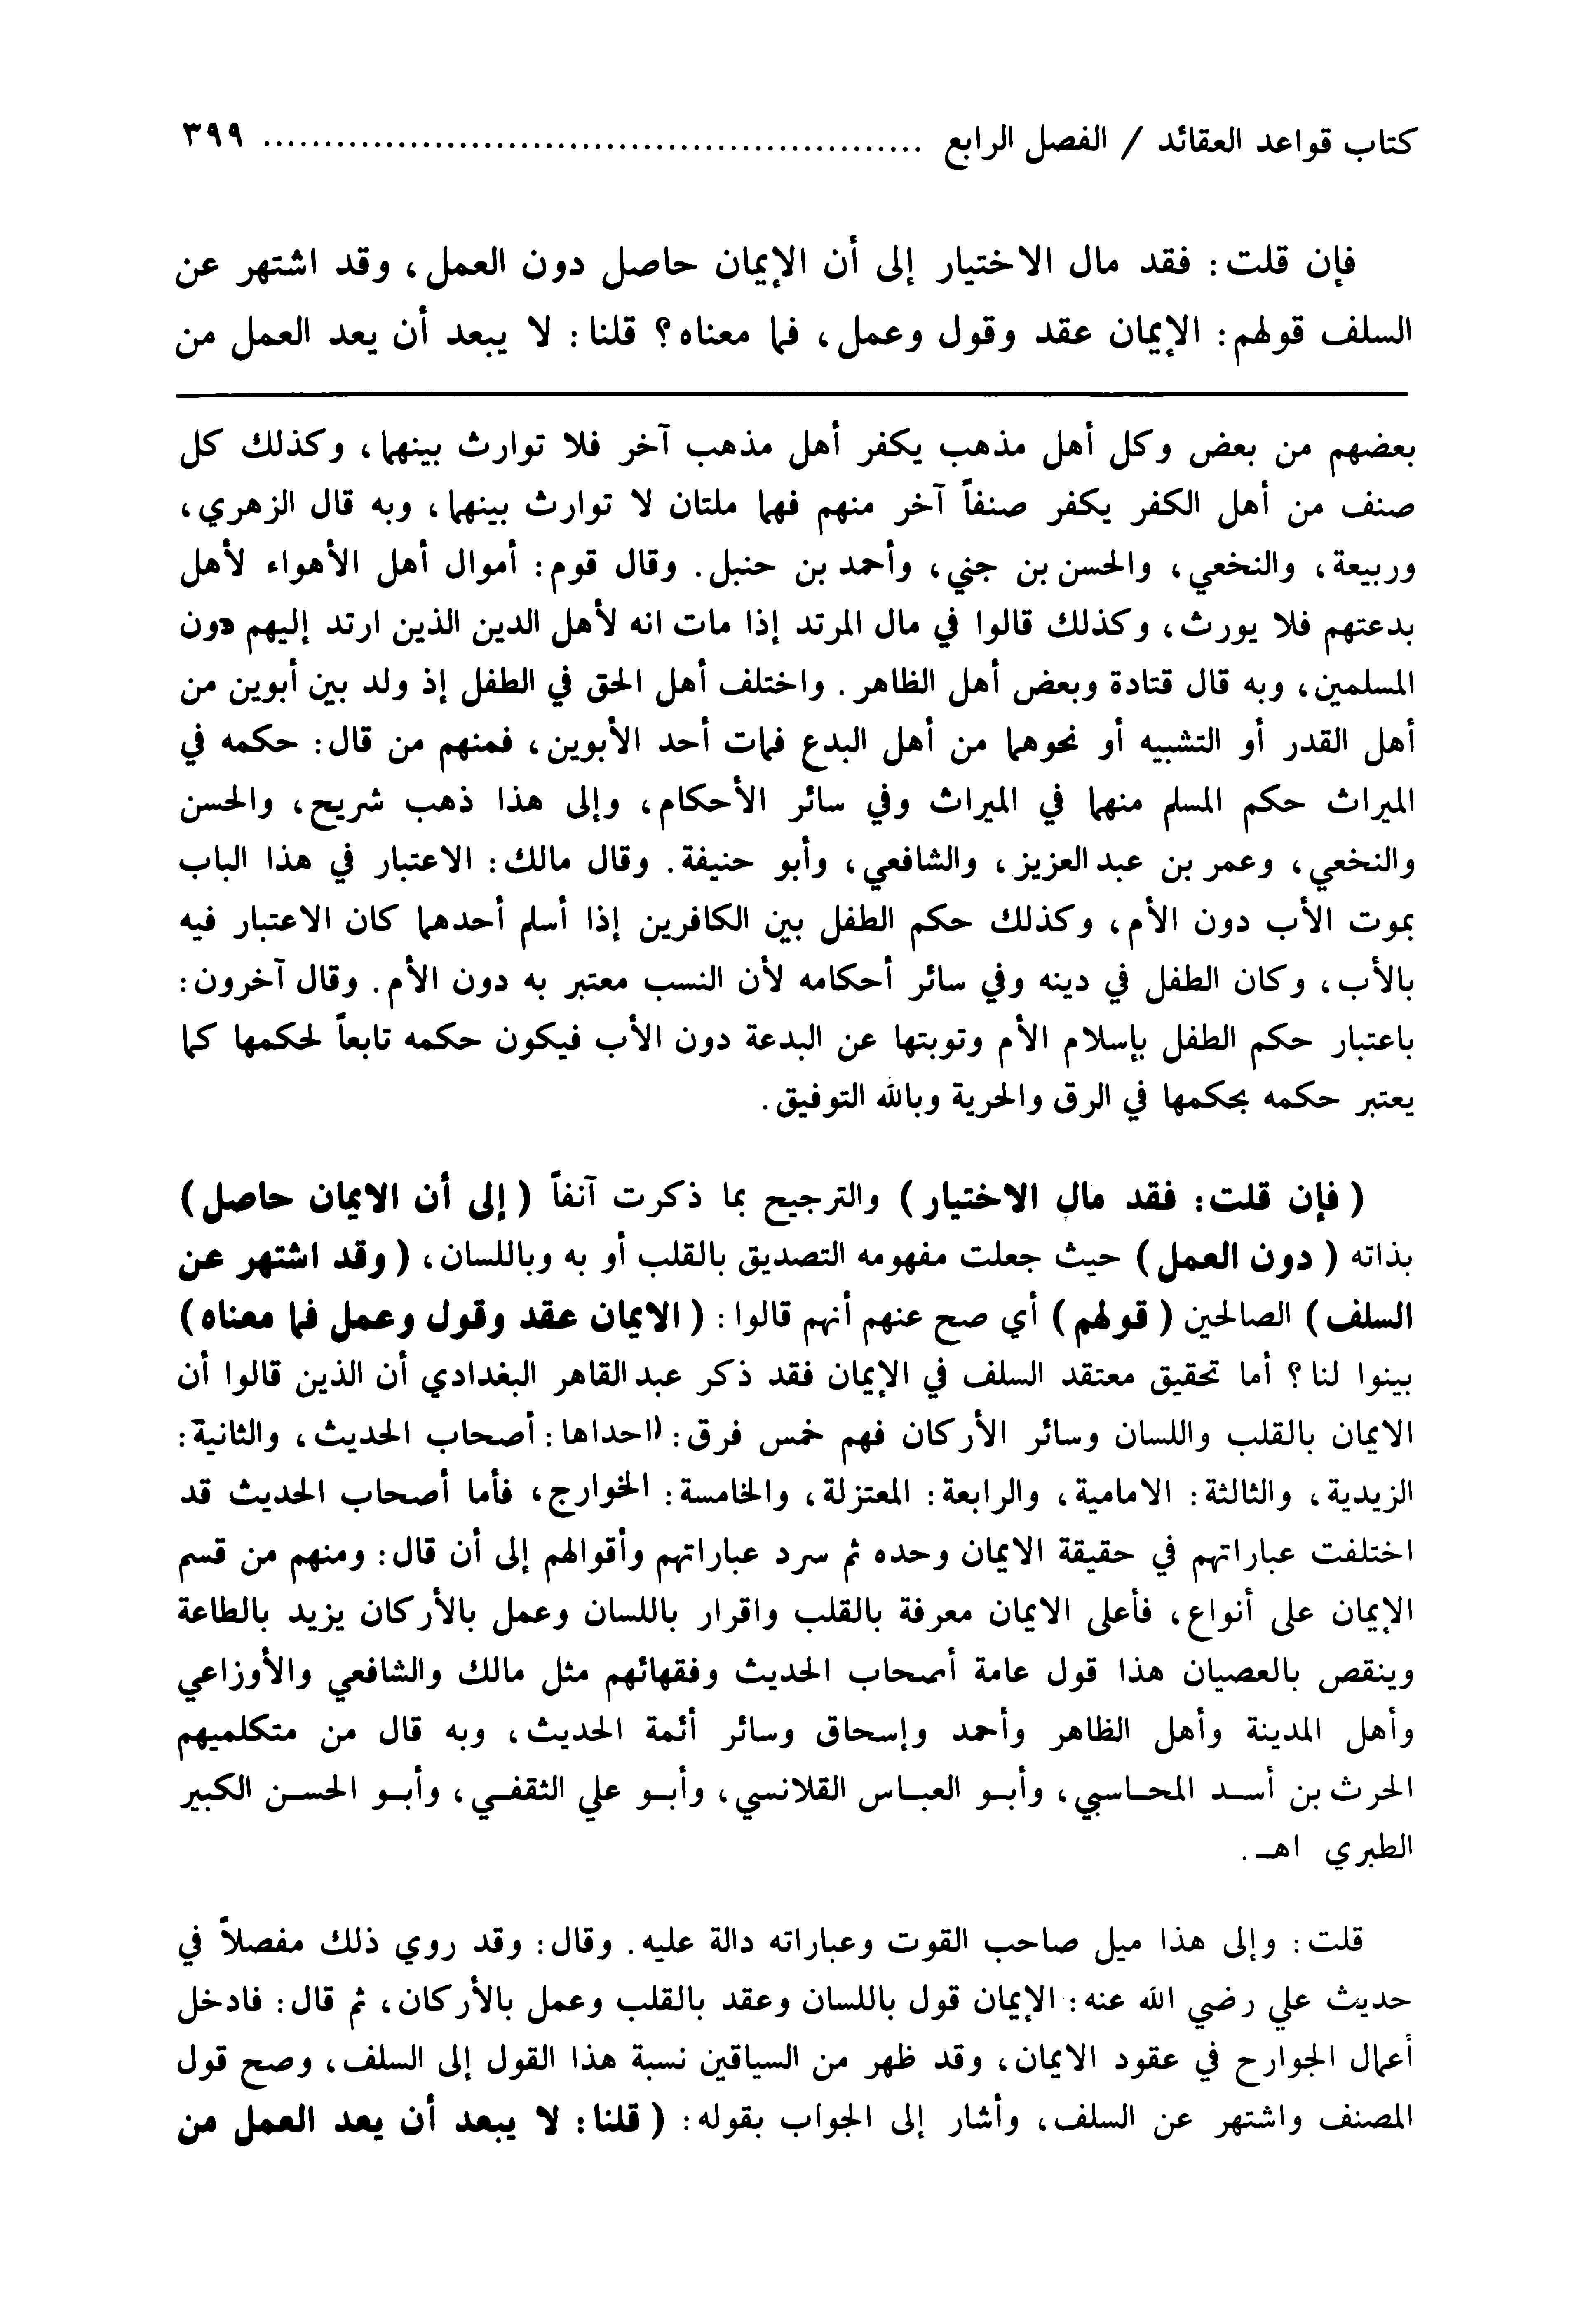 كتاب قواعد العقائد / الفصل الرابع ...................................................... ٣٩٩
فإن قلت: فقد مال الاختيار إلى أن الإيمان حاصل دون العمل، وقد اشتهر عن
السلف قولهم: الإيمان عقد وقول وعمل، فما معناه؟ قلنا: لا يبعد أن يعد العمل من
بعضهم من بعض وكل أهل مذهب يكفر أهل مذهب آخر فلا توارث بينهما، وكذلك كل
صنف من أهل الكفر يكفر صنفاً آخر منهم فهما ملتان لا توارث بينهما، وبه قال الزهري،
وربيعة، والنخعي، والحسن بن جني، وأحمد بن حنبل. وقال قوم: أموال أهل الأهواء لأهل
بدعتهم فلا يورث، وكذلك قالوا في مال المرتد إذا مات انه لأهل الدين الذين ارتد إليهم دون
المسلمين، وبه قال قتادة وبعض أهل الظاهر. واختلف أهل الحق في الطفل إذ ولد بين أبوين من
أهل القدر أو التشبيه أو نحوهما من أهل البدع فمات أحد الأبوين، فمنهم من قال: حكمه في
الميراث حكم المسلم منهما في الميراث وفي سائر الأحكام، وإلى هذا ذهب شريح، والحسن
والنخعي، وعمر بن عبد العزيز، والشافعي، وأبو حنيفة. وقال مالك: الاعتبار في هذا الباب
بموت الأب دون الأم، وكذلك حكم الطفل بين الكافرين إذا أسلم أحدهما كان الاعتبار فيه
بالأب، وكان الطفل في دينه وفي سائر أحكامه لأن النسب معتبر به دون الأم. وقال آخرون:
باعتبار حكم الطفل بإسلام الأم وتوبتها عن البدعة دون الأب فيكون حكمه تابعاً لحكمها كما
يعتبر حكمه بحكمها في الرق والحرية وبالله التوفيق.
( فإن قلت: فقد مال الاختيار ) والترجيح بما ذكرت آنفاً ( إلى أن الايمان حاصل )
بذاته ( دون العمل ) حيث جعلت مفهومه التصديق بالقلب أو به وباللسان، ( وقد اشتهر عن
السلف ) الصالحين ( قولهم ) أي صح عنهم أنهم قالوا: ( الايمان عقد وقول وعمل فما معناه )
بينوا لنا؟ أما تحقيق معتقد السلف في الإيمان فقد ذكر عبد القاهر البغدادي أن الذين قالوا أن
الايمان بالقلب واللسان وسائر الأركان فهم خمس فرق: احداها: أصحاب الحديث، والثانية:
الزيدية، والثالثة: الامامية، والرابعة: المعتزلة، والخامسة: الخوارج، فأما أصحاب الحديث قد
اختلفت عباراتهم في حقيقة الايمان وحده ثم سرد عباراتهم وأقوالهم إلى أن قال: ومنهم من قسم
الإيمان على أنواع، فأعلى الايمان معرفة بالقلب واقرار باللسان وعمل بالأركان يزيد بالطاعة
وينقص بالعصيان هذا قول عامة أصحاب الحديث وفقهائهم مثل مالك والشافعي والأوزاعي
وأهل المدينة وأهل الظاهر وأحمد وإسحاق وسائر أئمة الحديث، وبه قال من متكلميهم
الحرث بن أسـد المحـاسبي، وأبـو العبـاس القلانسي، وأبـو علي الثقفـي، وأبـو الحسـن الكبير
الطبري اهـ.
قلت: وإلى هذا ميل صاحب القوت وعباراته دالة عليه. وقال: وقد روي ذلك مفصلاً في
حديث علي رضي الله عنه: الإيمان قول باللسان وعقد بالقلب وعمل بالأركان، ثم قال: فادخل
أعمال الجوارح في عقود الايمان، وقد ظهر من السياقين نسبة هذا القول إلى السلف، وصح قول
المصنف واشتهر عن السلف، وأشار إلى الجواب بقوله: ( قلنا: لا يبعد أن يعد العمل من